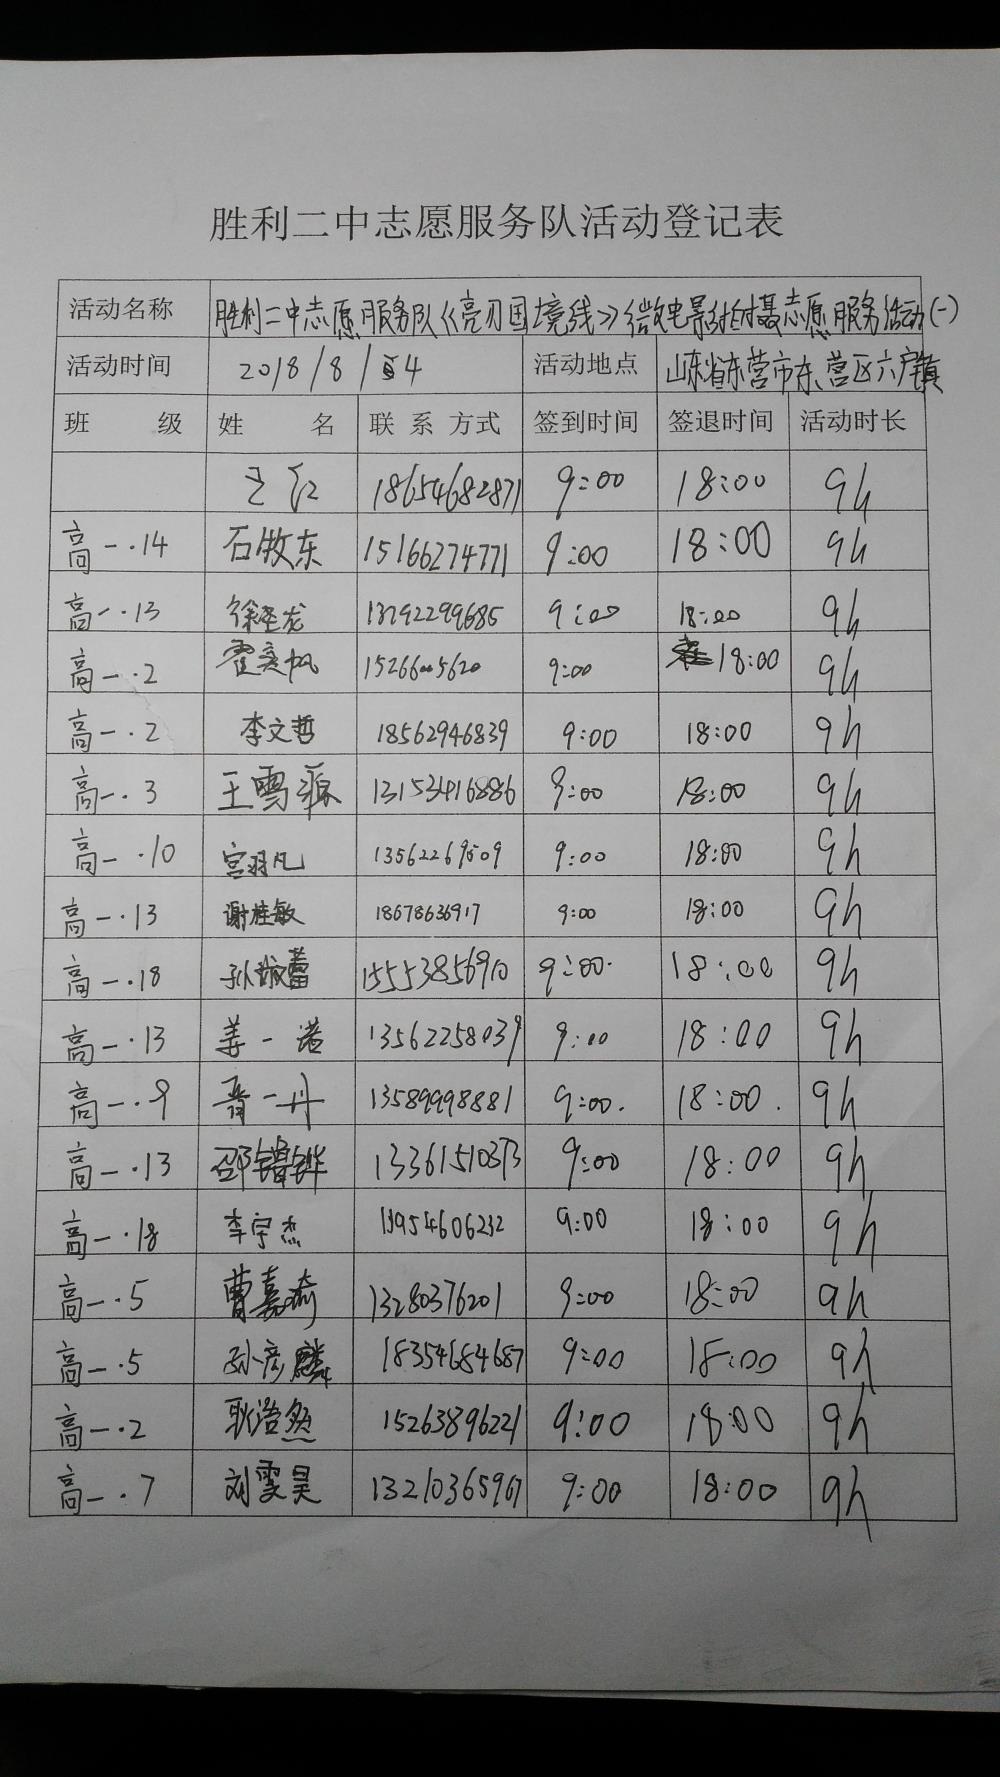 胜利二中志愿服务队活动登记表
活动名称 胜利二中志愿服务队《亮刃国境线》微电影拍摄志愿服务活动(一)
活动时间 2018/8/4 活动地点 山东省东营市东营区六户镇
班 级 姓 名 联系方式 签到时间 签退时间 活动时长
18654682871 9:00 18:00 9h
高一.14 石牧东 15166274771 9:00 18:00 9h
高一.13 13792299685 9:00 18:00 9h
高一.2 霍奕帆 15266005620 9:00 18:00 9h
高一.2 李文哲 18562946839 9:00 18:00 9h
高一.3 王雪源 13153416886 9:00 18:00 9h
高一.10 宫羽凡 13562269509 9:00 18:00 9h
高一.13 谢桂敏 18678636917 9:00 18:00 9h
高一.18 孙淑蕾 15553856910 9:00. 18:00 9h
高一.13 姜一诺 13562258039 9:00 18:00 9h
高一.9 晋一丹 13589998881 9:00. 18:00. 9h
高一.13 邵锴铧 13361510373 9:00 18:00 9h
高一.18 李宇杰 18954606232 9:00 18:00 9h
高一.5 曹嘉琦 13280376201 9:00 18:00 9h
高一.5 孙彦麟 18354684687 9:00 18:00 9h
高一.2 耿浩然 15263896221 9:00 18:00 9h
高一.7 刘雯昊 13210365967 9:00 18:00 9h